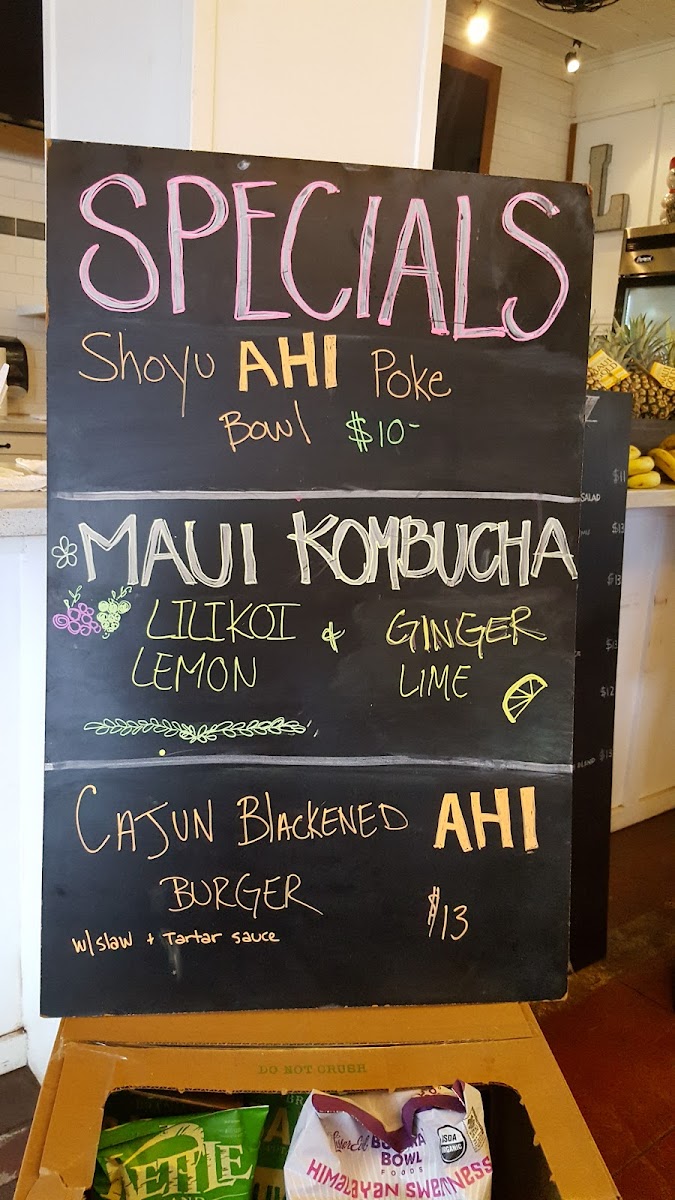 SPECIALS
Shoyu AHI Poke
Bowl $10-
MAUI KOMBUCHA
LILIKOI & GINGER
LEMON LIME
CAJUN BLACKENED AHI
BURGER $13
w/slaw + Tartar sauce
L
$11
SALAD
$13
$12
DO NOT CRUSH
KETTLE
BUDDHA
BOWL
FOODS
HIMALAYAN SWEETNESS
USDA
ORGANIC